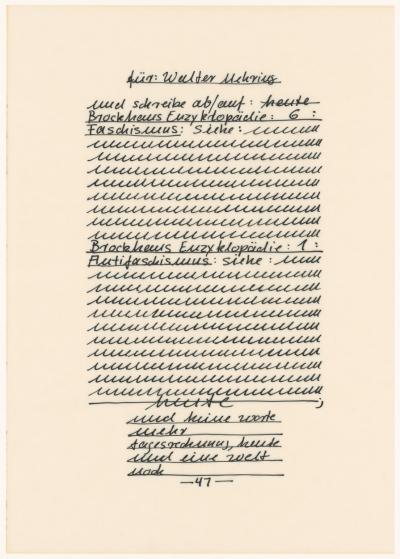 für: Walter Mehring
und schreibe ab/auf: heute
Brockhaus Enzyklopädie: 6 :
Faschismus: Siehe:
Brockhaus Enzyklopädie: 1 :
Antifaschismus: siehe:
heute ;
und keine worte
mehr
tagesrechnung, heute
und eine welt
nach
—47—